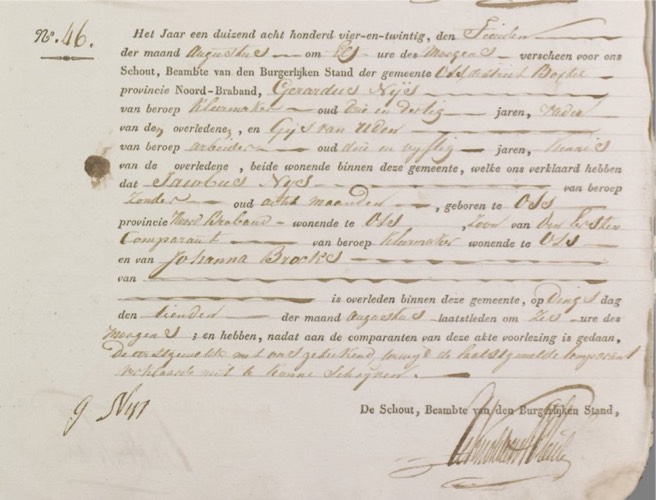 N.o 46. Het Jaar een duizend acht honderd vier-en-twintig, den Tienden
der maand Augustus om ure des Morgens verscheen voor ons
Schout, Beambte van den Burgerlijken Stand der gemeente Oss district
provincie Noord-Braband, Gerardus Nijs
van beroep Kleermaker oud Drie en dertig jaren, vader
van den overledene, en Gijs van Uden
van beroep arbeider oud drie en vyftig jaren, kennis
van de overledene, beide wonende binnen deze gemeente, welke ons verklaard hebben
dat Jacobus Nijs van beroep
Zonder oud acht maanden, geboren te Oss
provincie Noord Braband wonende te Oss, Zoon van den Eersten
Comparant van beroep Kleermaker wonende te Oss
en van Johanna Broeks
van
is overleden binnen deze gemeente, op Dings dag
den tienden der maand Augustus laatstleden om Zes ure des
Morgens; en hebben, nadat aan de comparanten van deze akte voorlezing is gedaan,
De eerstgemelde met ons geteekend, de laatstgemelde comparant
verklaarde niet te kunnen Schrijven.
De Schout, Beambte van den Burgerlijken Stand,
g Nijs